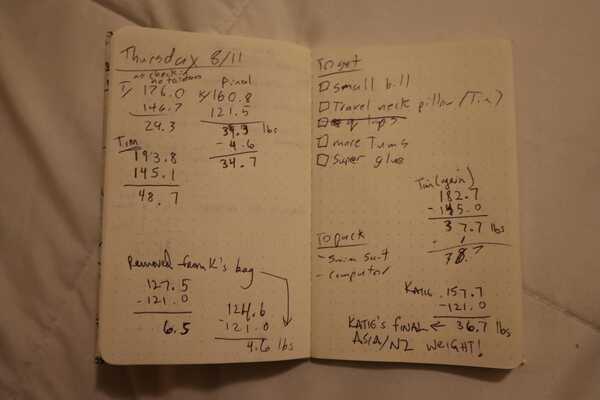 Thursday 8/11
no check in
no tandem
T/ 176.0
146.7
29.3
Final
K/ 160.8
121.5
39.3 lbs
- 4.6
34.7
Tim
193.8
145.1
48.7
Removed from K's bag
127.5
-121.0
6.5
124.6
-121.0
4.6 lbs
To get
small bill
Travel neck pillow (Tim)
more Tums
Super glue
Tim (again)
182.7
- 145.0
37.7 lbs
To pack
- Swim suit
- computer
KATIE 157.7
-121.0
36.7 lbs
KATIE'S FINAL ←
ASIA/NZ WEIGHT!